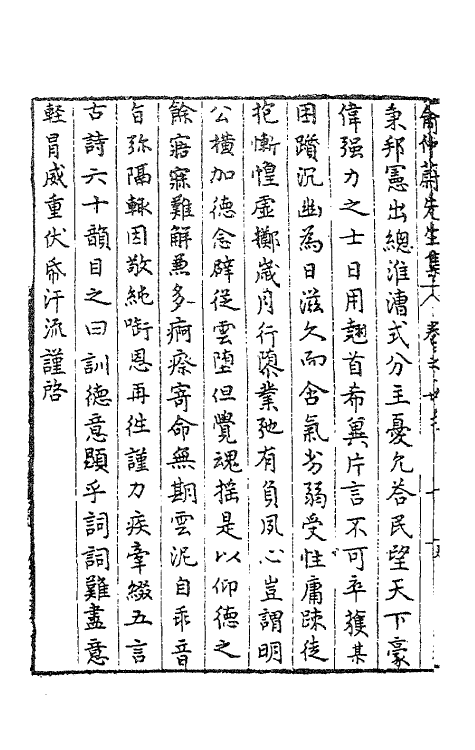 俞仲蔚先生集 卷之
秉邦憲出總淮漕式分主憂允答民望天下豪
偉强力之士日用翹首希冀片言不可卒獲某
困躓沉幽為日滋久而含氣劣弱受性庸疎徒
抱慚惶虛擲歲月行隳業弛有負夙心豈謂明
公橫加德念辟從雲墮但覺魂搖是以仰德之
餘寤寐難解兼多痾瘵寄命無期雲泥自乖音
旨弥隔輙因敬純啣恩再往謹力疾牽綴五言
古詩六十韻目之曰訓德意顯乎詞詞難盡意
輕冒威重伏紙汗流謹啓